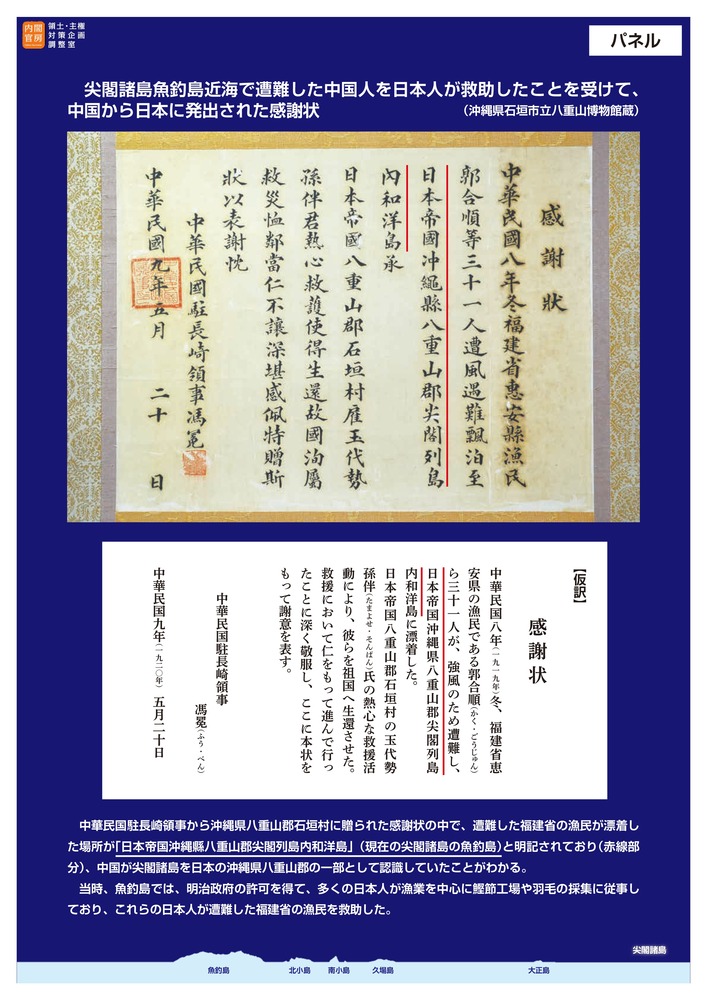 内閣官房
領土・主権
対策企画
調整室
パネル
尖閣諸島魚釣島近海で遭難した中国人を日本人が救助したことを受けて、
中国から日本に発出された感謝状
(沖縄県石垣市立八重山博物館蔵)
感謝狀
中華民國八年冬福建省惠安縣漁民
郭合順等三十一人遭風遇難飄泊至
日本帝國沖繩縣八重山郡尖閣列島
內和洋島承
日本帝國八重山郡石垣村雇玉代勢
孫伴君熱心救護使得生還故國洵屬
救災恤鄰當仁不讓深堪感佩特贈斯
狀以表謝忱
中華民國駐長崎領事馮冕
中華民國九年五月 二十 日
【仮訳】
感謝状
中華民国八年(一九一九年)冬、福建省恵
安県の漁民である郭合順(かく・ごうじゅん)
ら三十一人が、強風のため遭難し、
日本帝国沖縄県八重山郡尖閣列島
内和洋島に漂着した。
日本帝国八重山郡石垣村の玉代勢
孫伴(たまよせ・そんばん)氏の熱心な救援活
動により、彼らを祖国へ生還させた。
救援において仁をもって進んで行っ
たことに深く敬服し、ここに本状を
もって謝意を表す。
中華民国駐長崎領事
馮冕(ふう・べん)
中華民国九年(一九二〇年) 五月二十日
中華民国駐長崎領事から沖縄県八重山郡石垣村に贈られた感謝状の中で、遭難した福建省の漁民が漂着し
た場所が「日本帝国沖縄縣八重山郡尖閣列島内和洋島」(現在の尖閣諸島の魚釣島)と明記されており(赤線部
分)、中国が尖閣諸島を日本の沖縄県八重山郡の一部として認識していたことがわかる。
当時、魚釣島では、明治政府の許可を得て、多くの日本人が漁業を中心に鰹節工場や羽毛の採集に従事し
ており、これらの日本人が遭難した福建省の漁民を救助した。
尖閣諸島
魚釣島
北小島
南小島
久場島
大正島